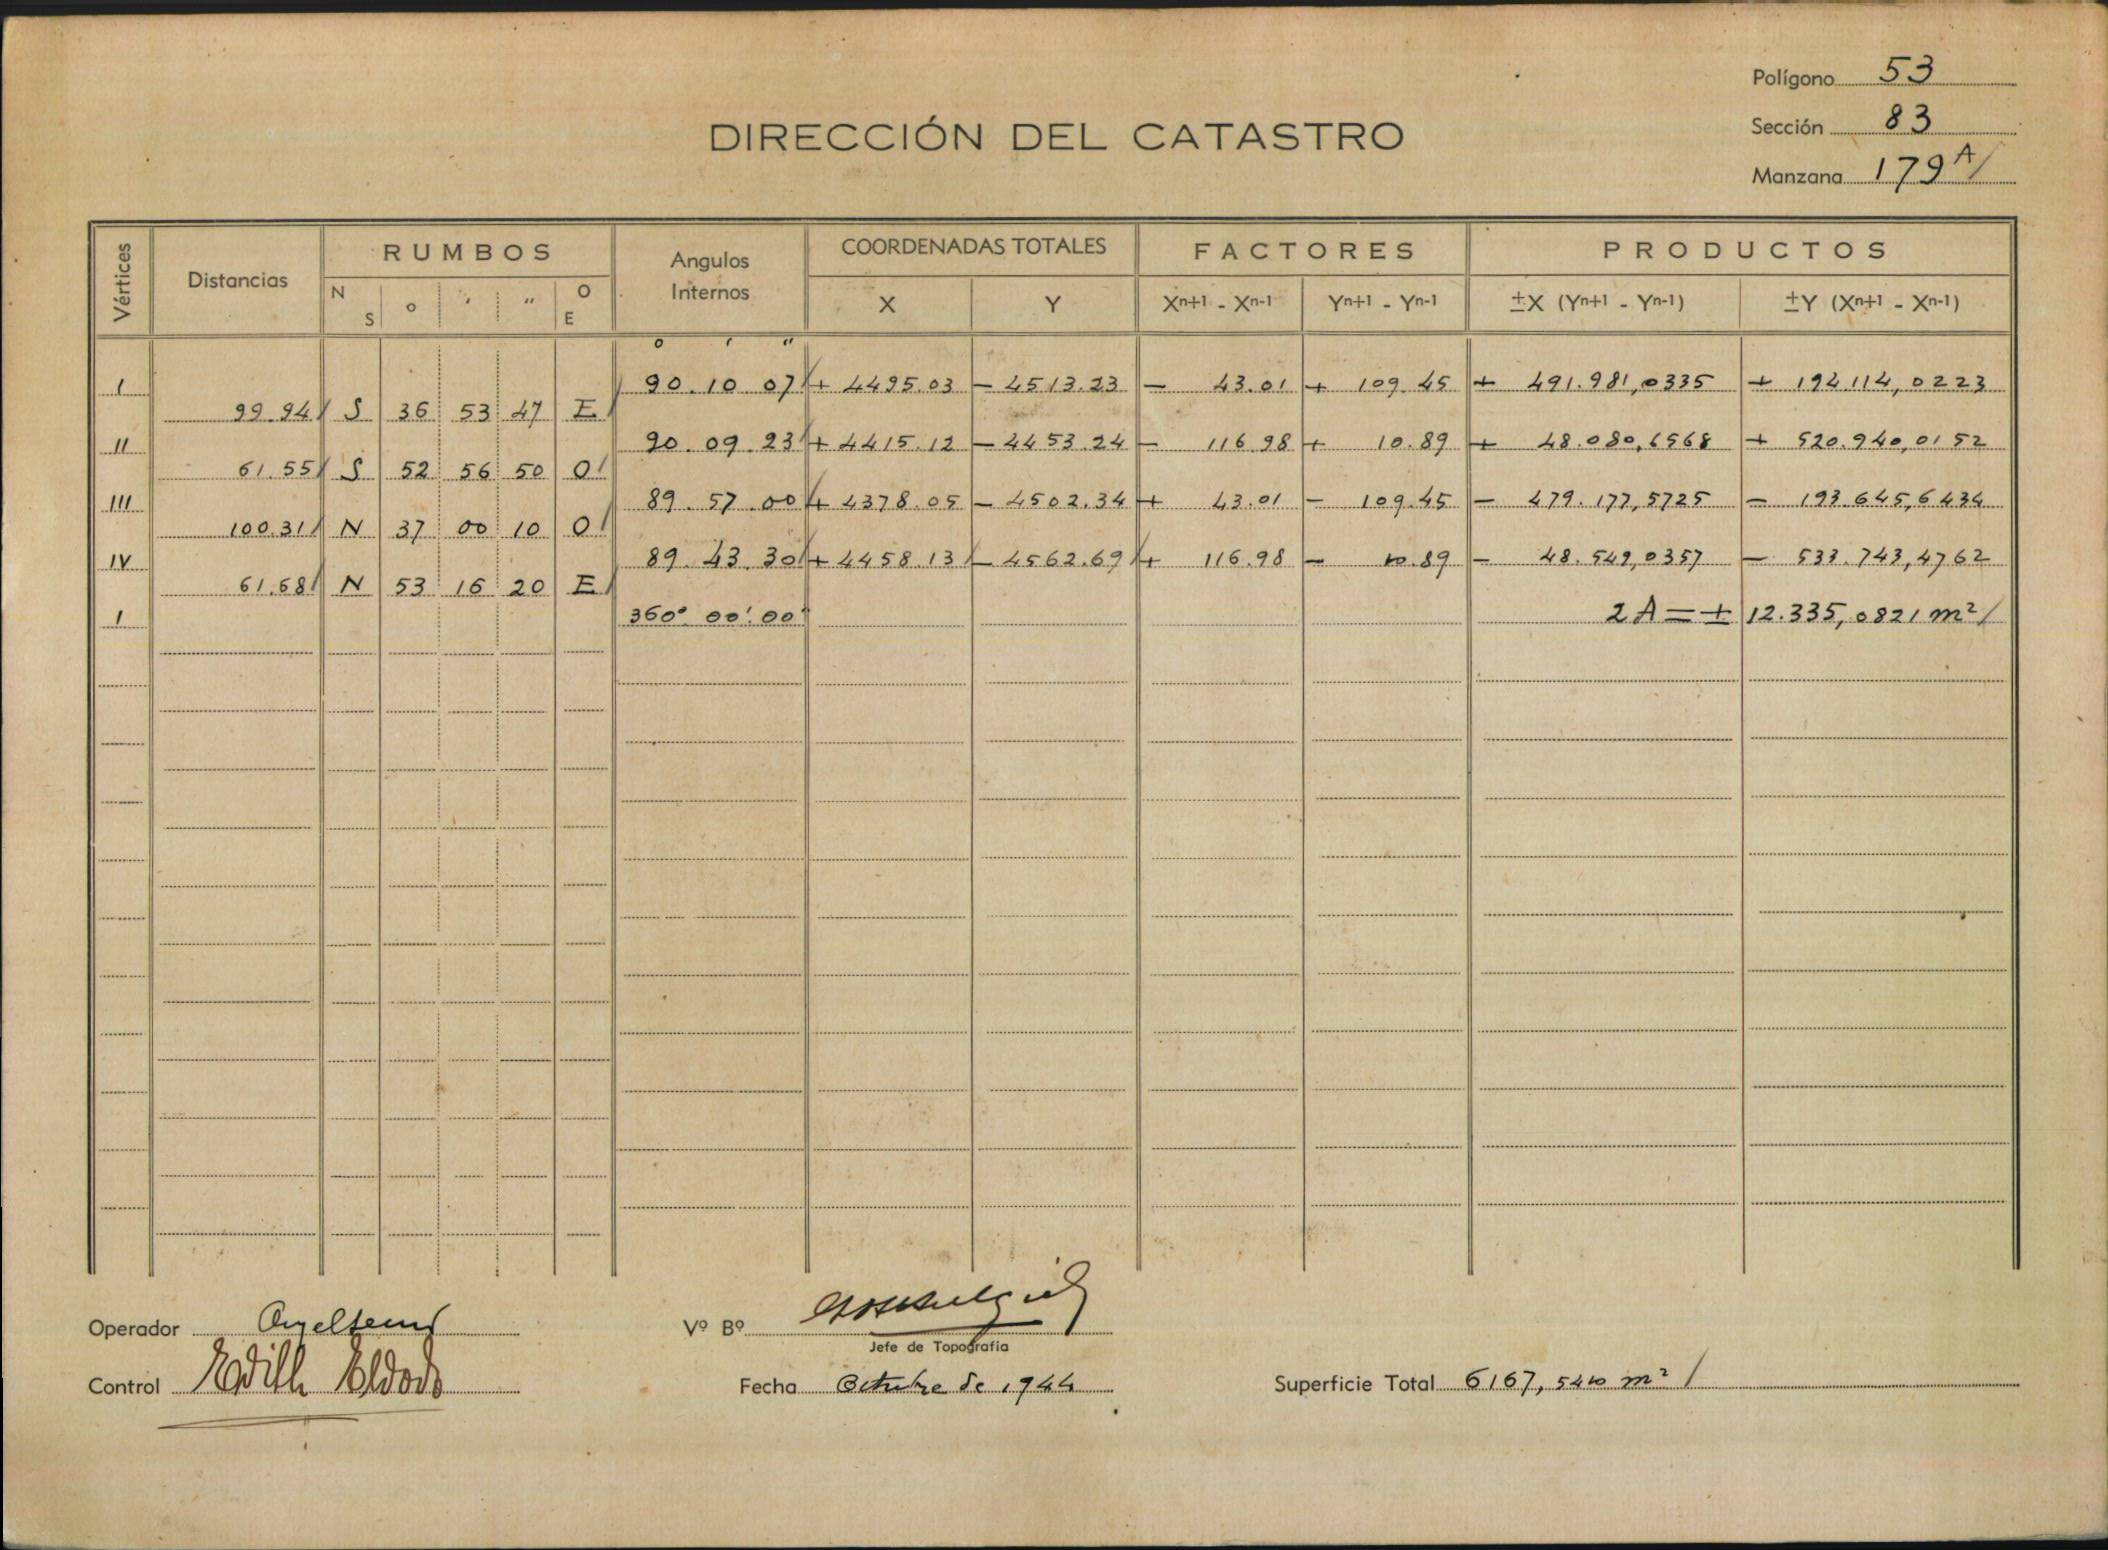 Polígono 53
Sección 83
Manzana 179 A/
DIRECCIÓN DEL CATASTRO
Vértices Distancias RUMBOS Angulos Internos COORDENADAS TOTALES FACTORES PRODUCTOS
N S o ′ ″ O E X Y Xn+1 - Xn-1 Yn+1 - Yn-1 ±X (Yn+1 - Yn-1) ±Y (Xn+1 - Xn-1)
o ′ ″
I 90. 10. 07/ + 4495.03 - 4513.23 - 43.01 + 109.45 + 491.981,0335 + 194.114,0223
99.94/ S 36 53 47 E/
II 90. 09. 23/ + 4415.12 - 4453.24 - 116.98 + 10.89 + 48.080,6568 + 520.940,0152
61.55/ S 52 56 50 O/
III 89. 57. 00/ + 4378.05 - 4502.34 + 43.01 - 109.45 - 479.177,5725 - 193.645,6434
100.31/ N 37 00 10 O/
IV 89. 43. 30/ + 4458.13/ - 4562.69/ + 116.98 - 10.89 - 48.549,0357 - 533.743,4762
61.68/ N 53 16 20 E/
I 360° 00′ 00″ 2A = + 12.335,0821 m²/
Operador
Vº Bº
Jefe de Topografía
Control Edith
Fecha Octubre de 1944
Superficie Total 6167,5410 m² /